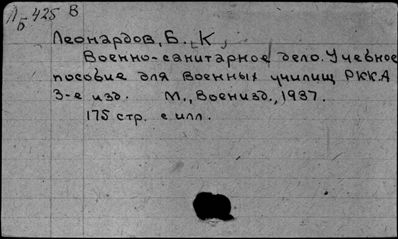 Л 425 В
Б
Леонардов, Б. К.
Военно-санитарное дело. Учебное
пособие для военных училищ РККА
3-е изд. М., Воениizд., 1937.
175 стр. с илл.